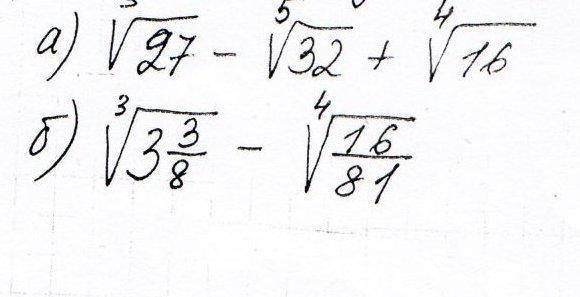 а) ∛27 - ⁵√32 + ⁴√16
б) ∛(3 3/8) - ⁴√(16/81)